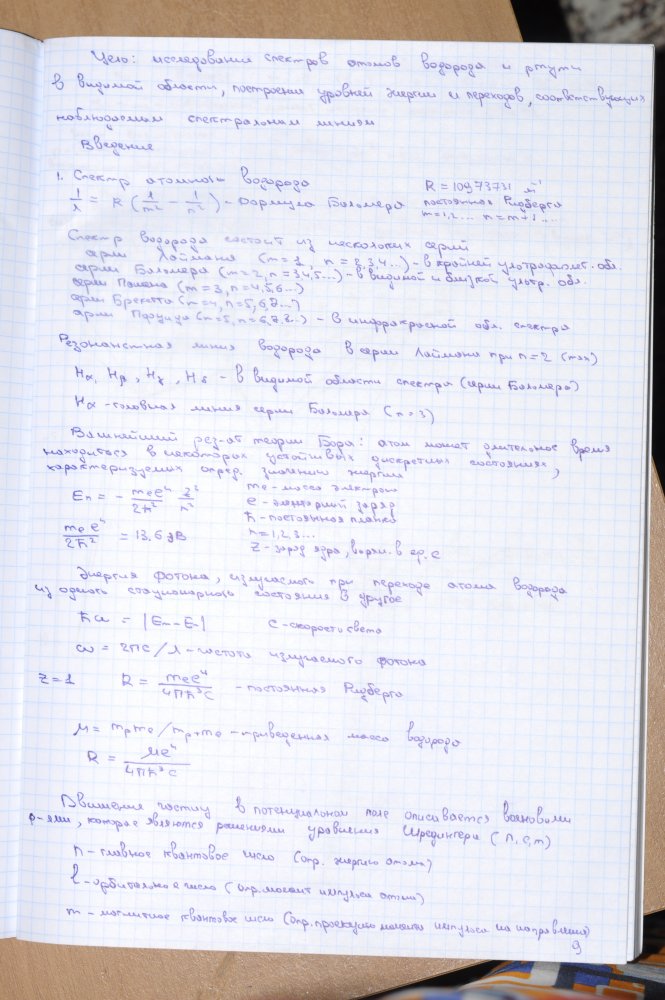 Цель: исследование спектров атомов водорода и ртути
в видимой области, построение уровней энергии и переходов, соответствующих
наблюдаемым спектральным линиям
Введение
1. Спектр атомного водорода R = 10973731 м⁻¹
1/λ = R (1/m² − 1/n²) – формула Бальмера постоянная Ридберга
m=1,2... n=m+1...
Спектр водорода состоит из нескольких серий
серии Лаймана (m=1, n=2,3,4...) – в крайней ультрафиолет. обл.
серии Бальмера (m=2, n=3,4,5...) – в видимой и близкой ультр. обл.
серии Пашена (m=3, n=4,5,6...)
серии Брекетта (m=4, n=5,6,7...)
серии Пфунда (n=5, n=6,7,8..) – в инфракрасной обл. спектра
Резонансная линия водорода в серии Лаймана при n=2 (max)
Hα, Hβ, Hγ, Hδ – в видимой области спектра (серии Бальмера)
Hα – головная линия серии Бальмера (n=3)
Важнейший рез-ат теории Бора: атом может длительное время
находиться в некоторых устойчивых дискретных состояниях,
характеризуемых опред. значению энергии
Eₙ = − mₑe⁴/2ħ² z²/n² me – масса электрона
e – элентарный заряд
mₑe⁴/2ħ² = 13,6 эВ ħ – постоянная планка
n=1,2,3...
Z – заряд ядра, выраж. в ед. e
Энергия фотона, излучаемого при переходе атома водорода
из одного стационарного состояния в другое
ħω = |Em − En| c – скорость света
ω = 2πc/λ – частота излучаемого фотона
Z=1 R = mₑe⁴/4πħ³c – постоянная Ридберга
μ = mpme/mp+me – приведенная масса водорода
R = μe⁴/4πħ³c
Движения частиц в потенциальном поле описывается волновыми
ф-ями, которое являются решениями уравнения Шредингера (n, e, m)
n – главное квантовое число (опр. энергию атома)
l – орбитальное число (опр. момент импульса атома)
m – магнитное квантовое число (опр. проекцию момента импульса на направления)
9